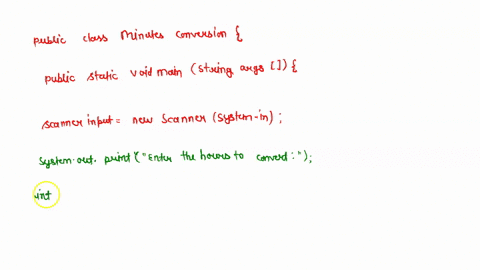 public class Minutes conversion {
public static void main (string args []) {
scanner input = new Scanner (system-in) ;
system.out. print ("Enter the hours to convert : ");
int